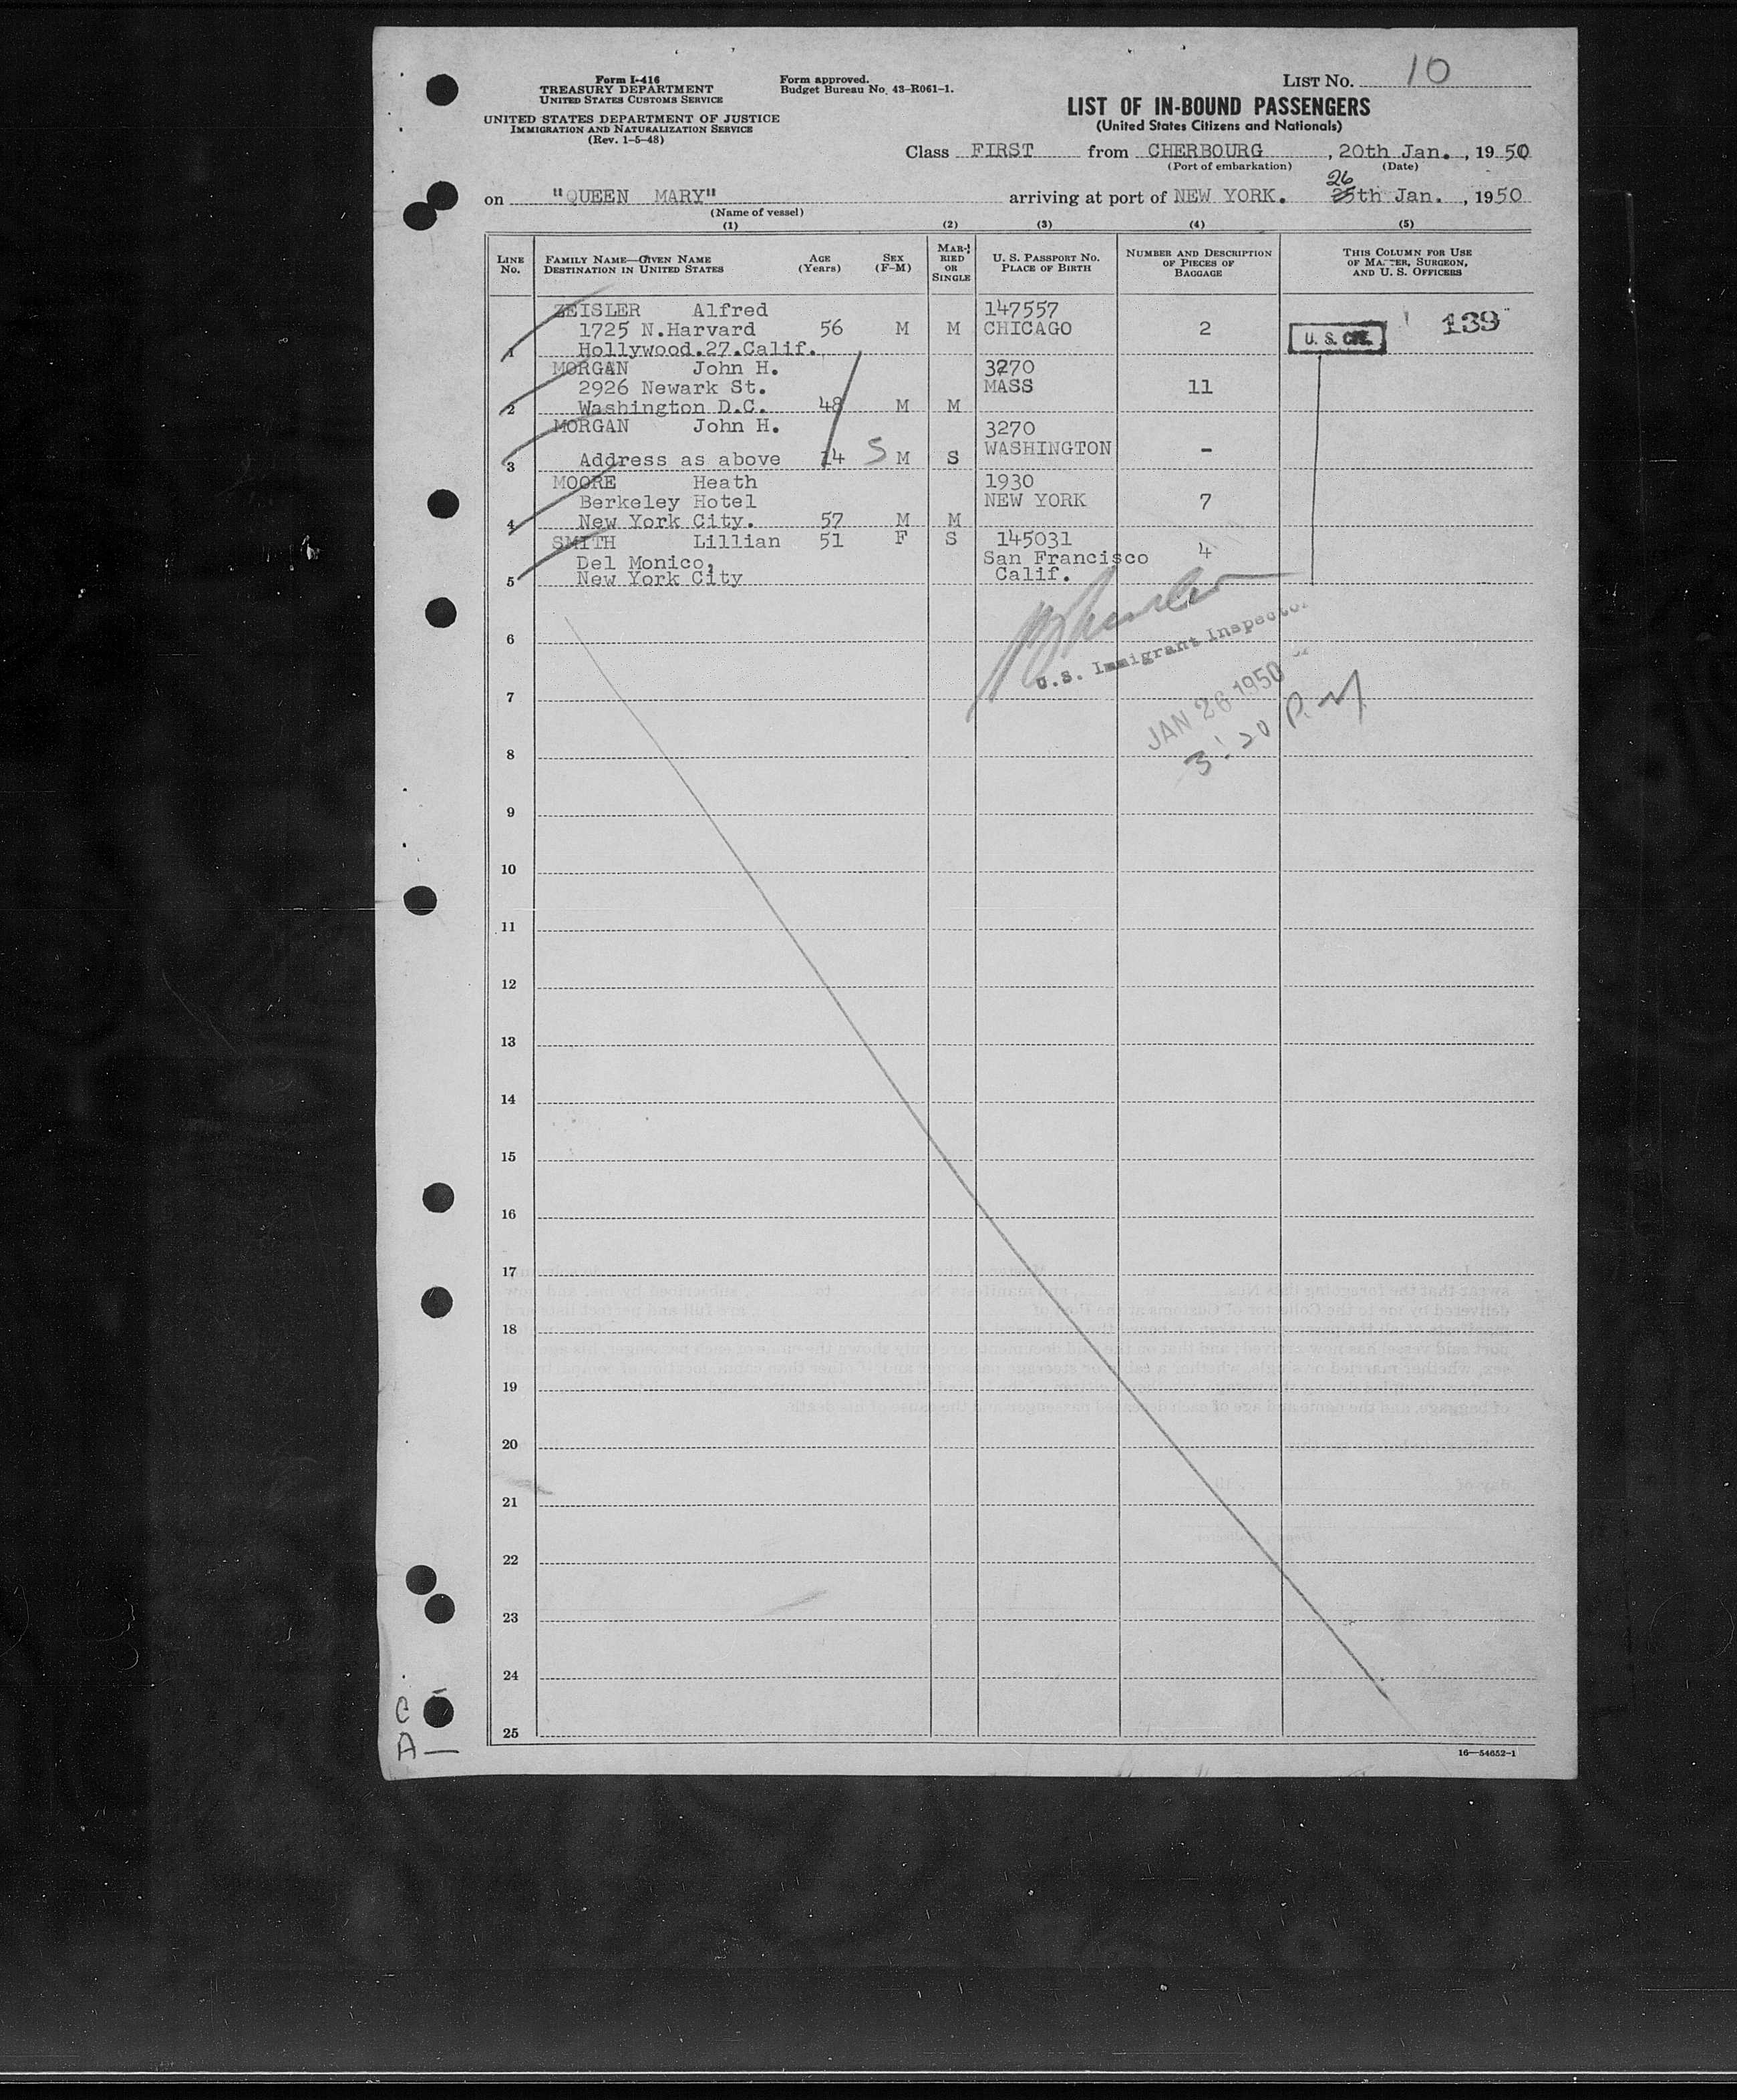 Form I-416
TREASURY DEPARTMENT
UNITED STATES CUSTOMS SERVICE
UNITED STATES DEPARTMENT OF JUSTICE
IMMIGRATION AND NATURALIZATION SERVICE
(Rev. 1-5-48)
Form approved.
Budget Bureau No. 43-R061-1.
LIST NO. 10
LIST OF IN-BOUND PASSENGERS
(United States Citizens and Nationals)
Class FIRST from CHERBOURG, 20th Jan., 1950
(Port of embarkation) (Date)
26
on "QUEEN MARY" arriving at port of NEW YORK. 25th Jan., 1950
(Name of vessel)
(1) (2) (3) (4) (5)
LINE NO.
FAMILY NAME—GIVEN NAME
DESTINATION IN UNITED STATES
AGE (Years)
SEX (F-M)
MARRIED OR SINGLE
U. S. PASSPORT NO.
PLACE OF BIRTH
NUMBER AND DESCRIPTION OF PIECES OF BAGGAGE
THIS COLUMN FOR USE OF MASTER, SURGEON, AND U. S. OFFICERS
ZEISLER Alfred 147557
1725 N.Harvard 56 M M CHICAGO 2 U. S. CIT. 139
1 Hollywood.27.Calif.
MORGAN John H. 3270
2926 Newark St. MASS 11
2 Washington D.C. 48 M M
MORGAN John H. 3270
WASHINGTON -
3 Address as above 14 S M S
MOORE Heath 1930
Berkeley Hotel NEW YORK 7
4 New York City. 57 M M
SMITH Lillian 51 F S 145031
Del Monico, San Francisco 4
5 New York City Calif.
6
U.S. Immigrant Inspector
7
JAN 26 1950
3:20 P.M
8
9
10
11
12
13
14
15
16
17
18
19
20
21
22
23
24
25
C
A
16—54652-1